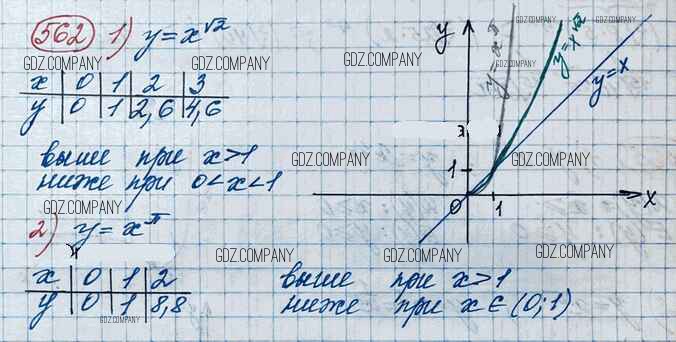 562 1) y = x^√2
x 0 1 2 3
y 0 1 2,6 4,6
выше при x > 1
ниже при 0 < x < 1
2) y = x^π
x 0 1 2
y 0 1 8,8
выше при x > 1
ниже при x ∈ (0; 1)
y
y = x^π
y = x^√2
y = x
1
0 1 x
GDZ.COMPANY
GDZ.COMPANY
GDZ.COMPANY
GDZ.COMPANY
GDZ.COMPANY
GDZ.COMPANY
GDZ.COMPANY
GDZ.COMPANY
GDZ.COMPANY
GDZ.COMPANY
GDZ.COMPANY
GDZ.COMPANY
GDZ.COMPANY